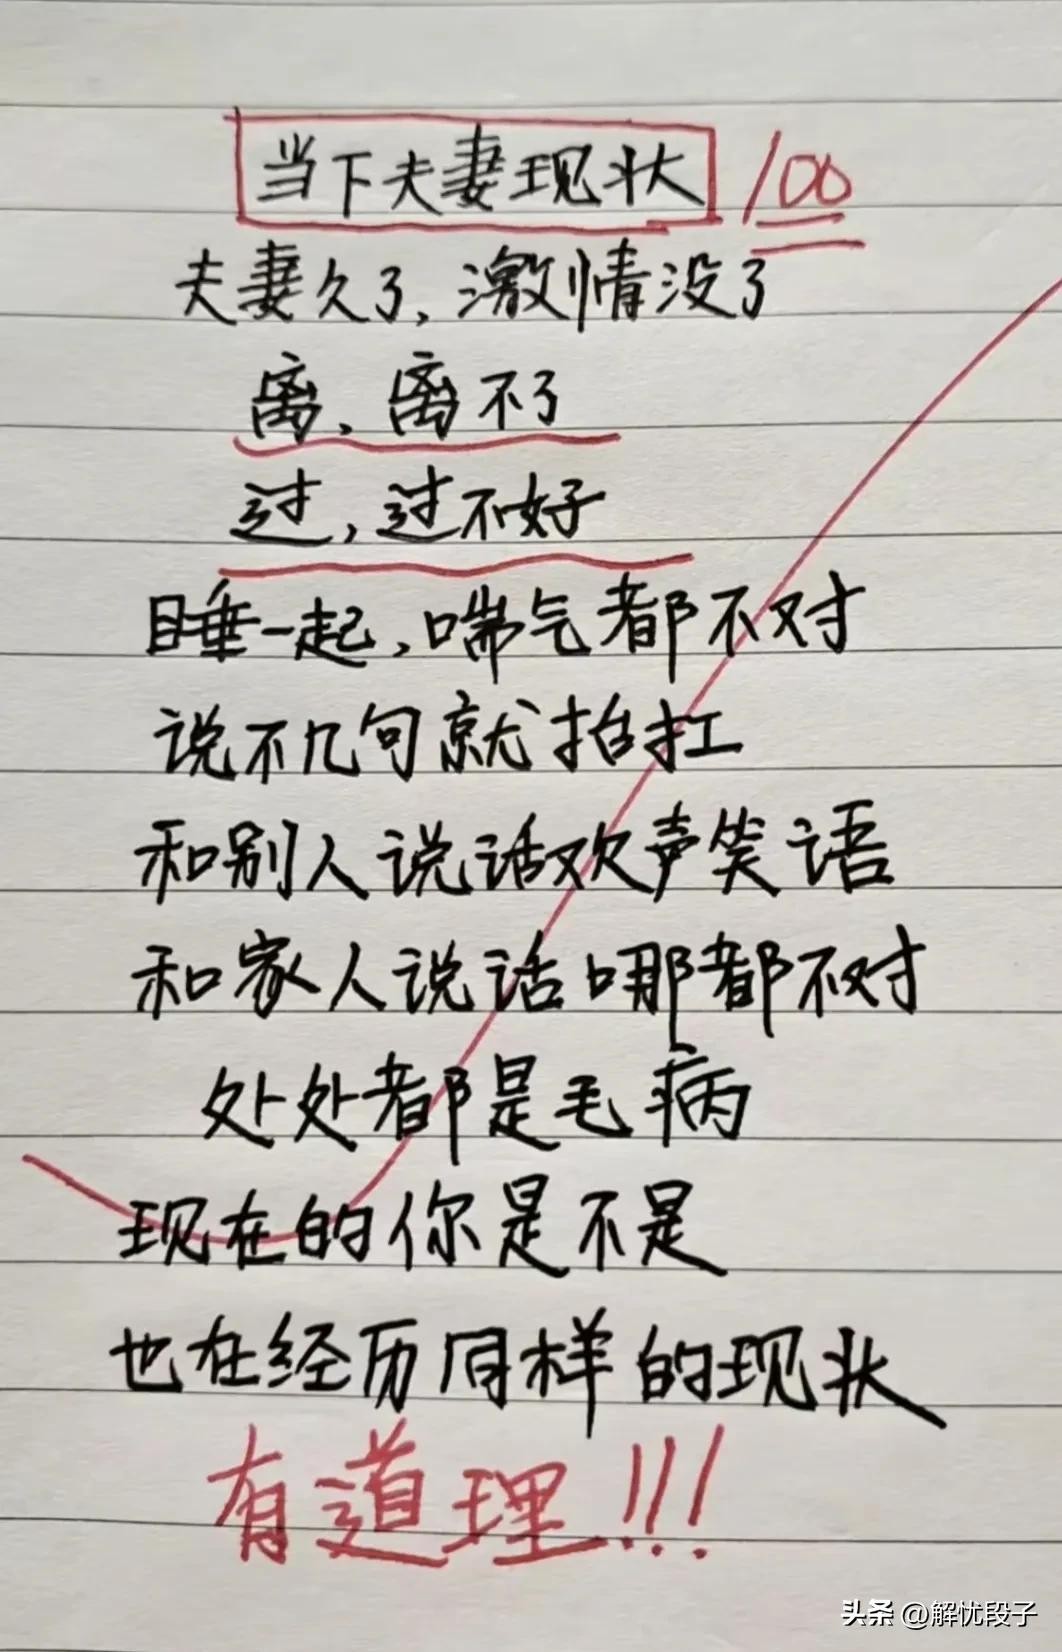 当下夫妻现状 100
夫妻久了,激情没了
离,离不了
过,过不好
睡一起,喘气都不对
说不几句就抬扛
和别人说话欢声笑语
和家人说话哪都不对
处处都是毛病
现在的你是不是
也在经历同样的现状
有道理!!!
头条 @解忧段子